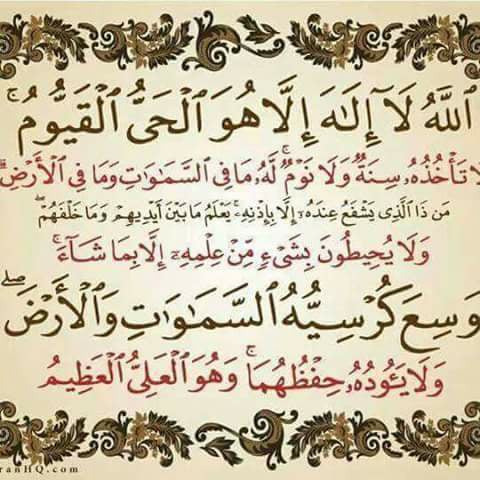 ٱللَّهُ لَآ إِلَٰهَ إِلَّا هُوَ ٱلْحَىُّ ٱلْقَيُّومُ ۚ
لَا تَأْخُذُهُۥ سِنَةٌ وَلَا نَوْمٌ ۚ لَّهُۥ مَا فِى ٱلسَّمَٰوَٰتِ وَمَا فِى ٱلْأَرْضِ ۗ
مَن ذَا ٱلَّذِى يَشْفَعُ عِندَهُۥٓ إِلَّا بِإِذْنِهِۦ ۚ يَعْلَمُ مَا بَيْنَ أَيْدِيهِمْ وَمَا خَلْفَهُمْ ۖ
وَلَا يُحِيطُونَ بِشَىْءٍ مِّنْ عِلْمِهِۦٓ إِلَّا بِمَا شَآءَ ۚ
وَسِعَ كُرْسِيُّهُ ٱلسَّمَٰوَٰتِ وَٱلْأَرْضَ ۖ
وَلَا يَـُٔودُهُۥ حِفْظُهُمَا ۚ وَهُوَ ٱلْعَلِىُّ ٱلْعَظِيمُ
ranHQ.com